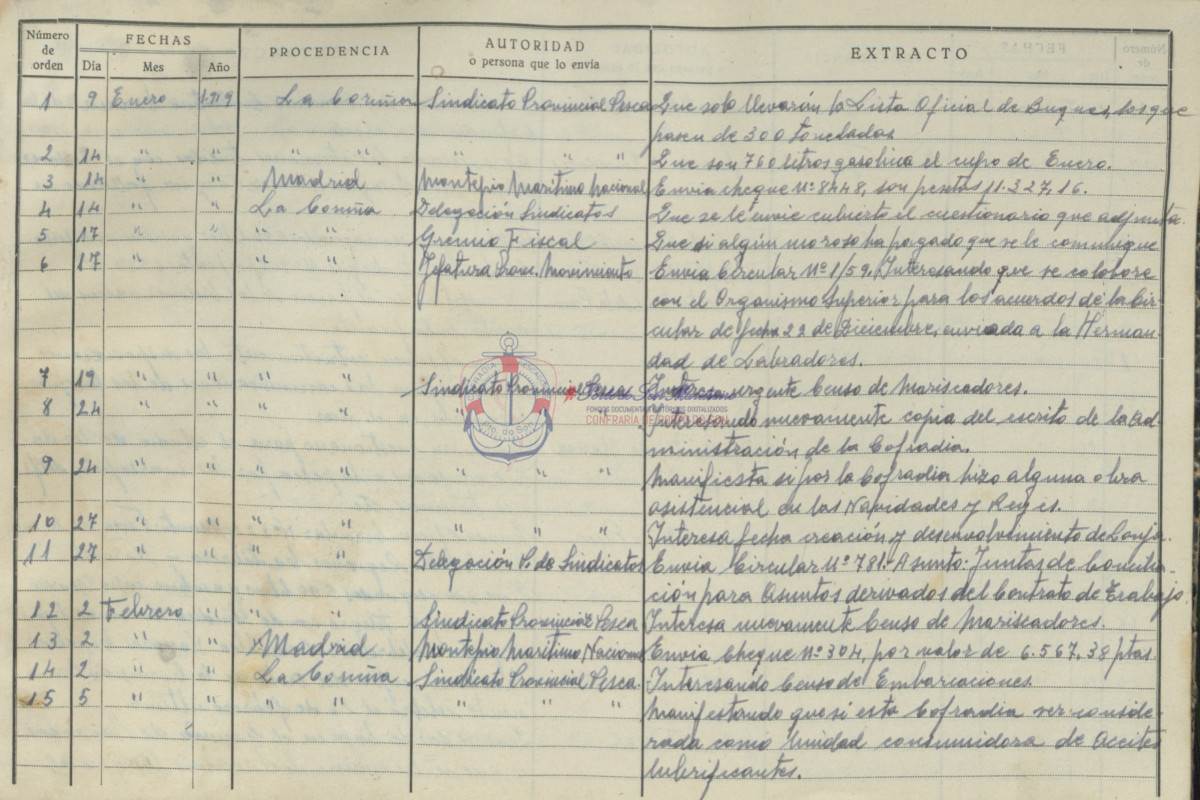 Número de orden FECHAS Día Mes Año PROCEDENCIA AUTORIDAD ó persona que lo envía EXTRACTO
1 9 Enero 1.959 La Coruña Sindicato Provincial Pesca Que solo llevarán la Lista Oficial de Buques, los que
pasen de 300 toneladas
2 14 " " " " " " " Que son 760 litros gasolina el cupo de Enero.
3 14 " " Madrid Montepio Maritimo Nacional Envia cheque nº 8448, son pesetas 11.327,16.
4 14 " " La Coruña Delegación Sindicatos Que se le envie cubierto el cuestionario que adjunta.
5 17 " " " " Gremio Fiscal Que si algún moroso ha pagado que se le comunique
6 17 " " " " Jefatura Prov. Movimiento Envia Circular Nº 1/59. Interesando que se colabore
con el Organismo Superior para los acuerdos de la Cir-
cular de fecha 22 de Diciembre, enviada a la Herman-
dad de Labradores.
7 19 " " " " Sindicato Provincial Pesca Interesa urgente Censo de Mariscadores.
8 24 " " " " Interesando nuevamente copia del escrito de la Ad-
ministración de la Cofradia.
9 24 " " " " " " " Manifiesta si por la Cofradia hizo alguna obra
asistencial en las Navidades y Reyes.
10 27 " " " " " " " Interesa fecha creación y desenvolvimiento de Confra.
11 27 " " " " Delegación P. de Sindicatos Envia Circular Nº 781.- Asunto: Juntas de Concilia-
ción para Asuntos derivados del Contrato de Trabajo.
12 2 Febrero " " " Sindicato Provincial Pesca Interesa nuevamente Censo de Mariscadores.
13 2 " " Madrid Montepio Maritimo Nacional Envia Cheque Nº 304, por valor de 6.567,38 ptas.
14 2 " " La Coruña Sindicato Provincial Pesca Interesando Censo de Embarcaciones.
15 5 " " " " " " " Manifestando que si esta Cofradia ser conside-
rada como Unidad consumidora de Aceites
lubrificantes.
FONDOS DOCUMENTAIS HISTÓRICOS DIGITALIZADOS
CONFRARÍA DE PORTO DO SON
Pto. do Son